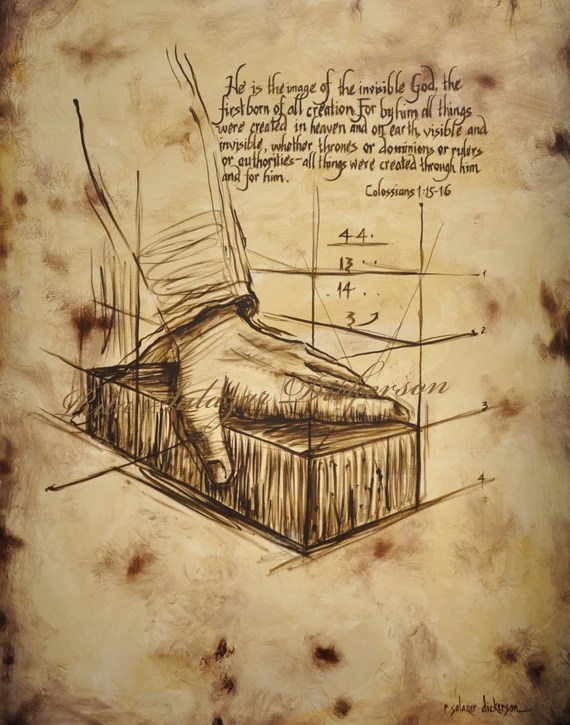 He is the image of the invisible God, the
firstborn of all creation. For by him all things
were created in heaven and on earth, visible and
invisible, whether thrones or dominions or rulers
or authorities-all things were created through him
and for him.
Colossians 1:15-16
44.
13 ..
1
.14 ..
2
3
3
4
Salazar Dickerson
r. salazar dickerson